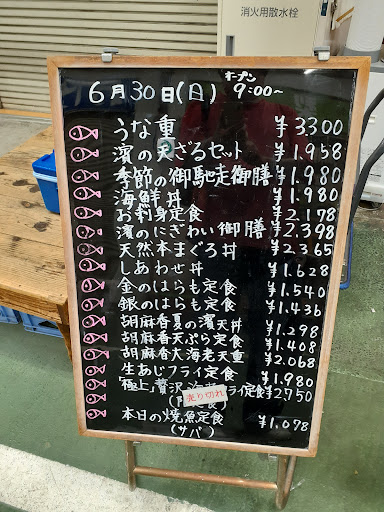 消火用散水栓
オープン
6月30日(日) 9:00~
うな重 ¥3300
濱の天ざるセット ¥1.958
季節の御馳走御膳 ¥1.980
海鮮丼 ¥1.980
お刺身定食 ¥2.178
濱のにぎわい御膳 ¥2.398
天然本まぐろ丼 ¥2.365
しあわせ丼 ¥1.628
金のはらも定食 ¥1.540
銀のはらも定食 ¥1.436
胡麻香夏の濱天丼 ¥1.298
胡麻香天ぷら定食 ¥1.408
胡麻香大海老天重 ¥2.068
生あじフライ定食 ¥1.980
「極上」贅沢海 フライ定食 ¥2750
売り切れ
本日の焼魚定食 ¥1.078
(サバ)